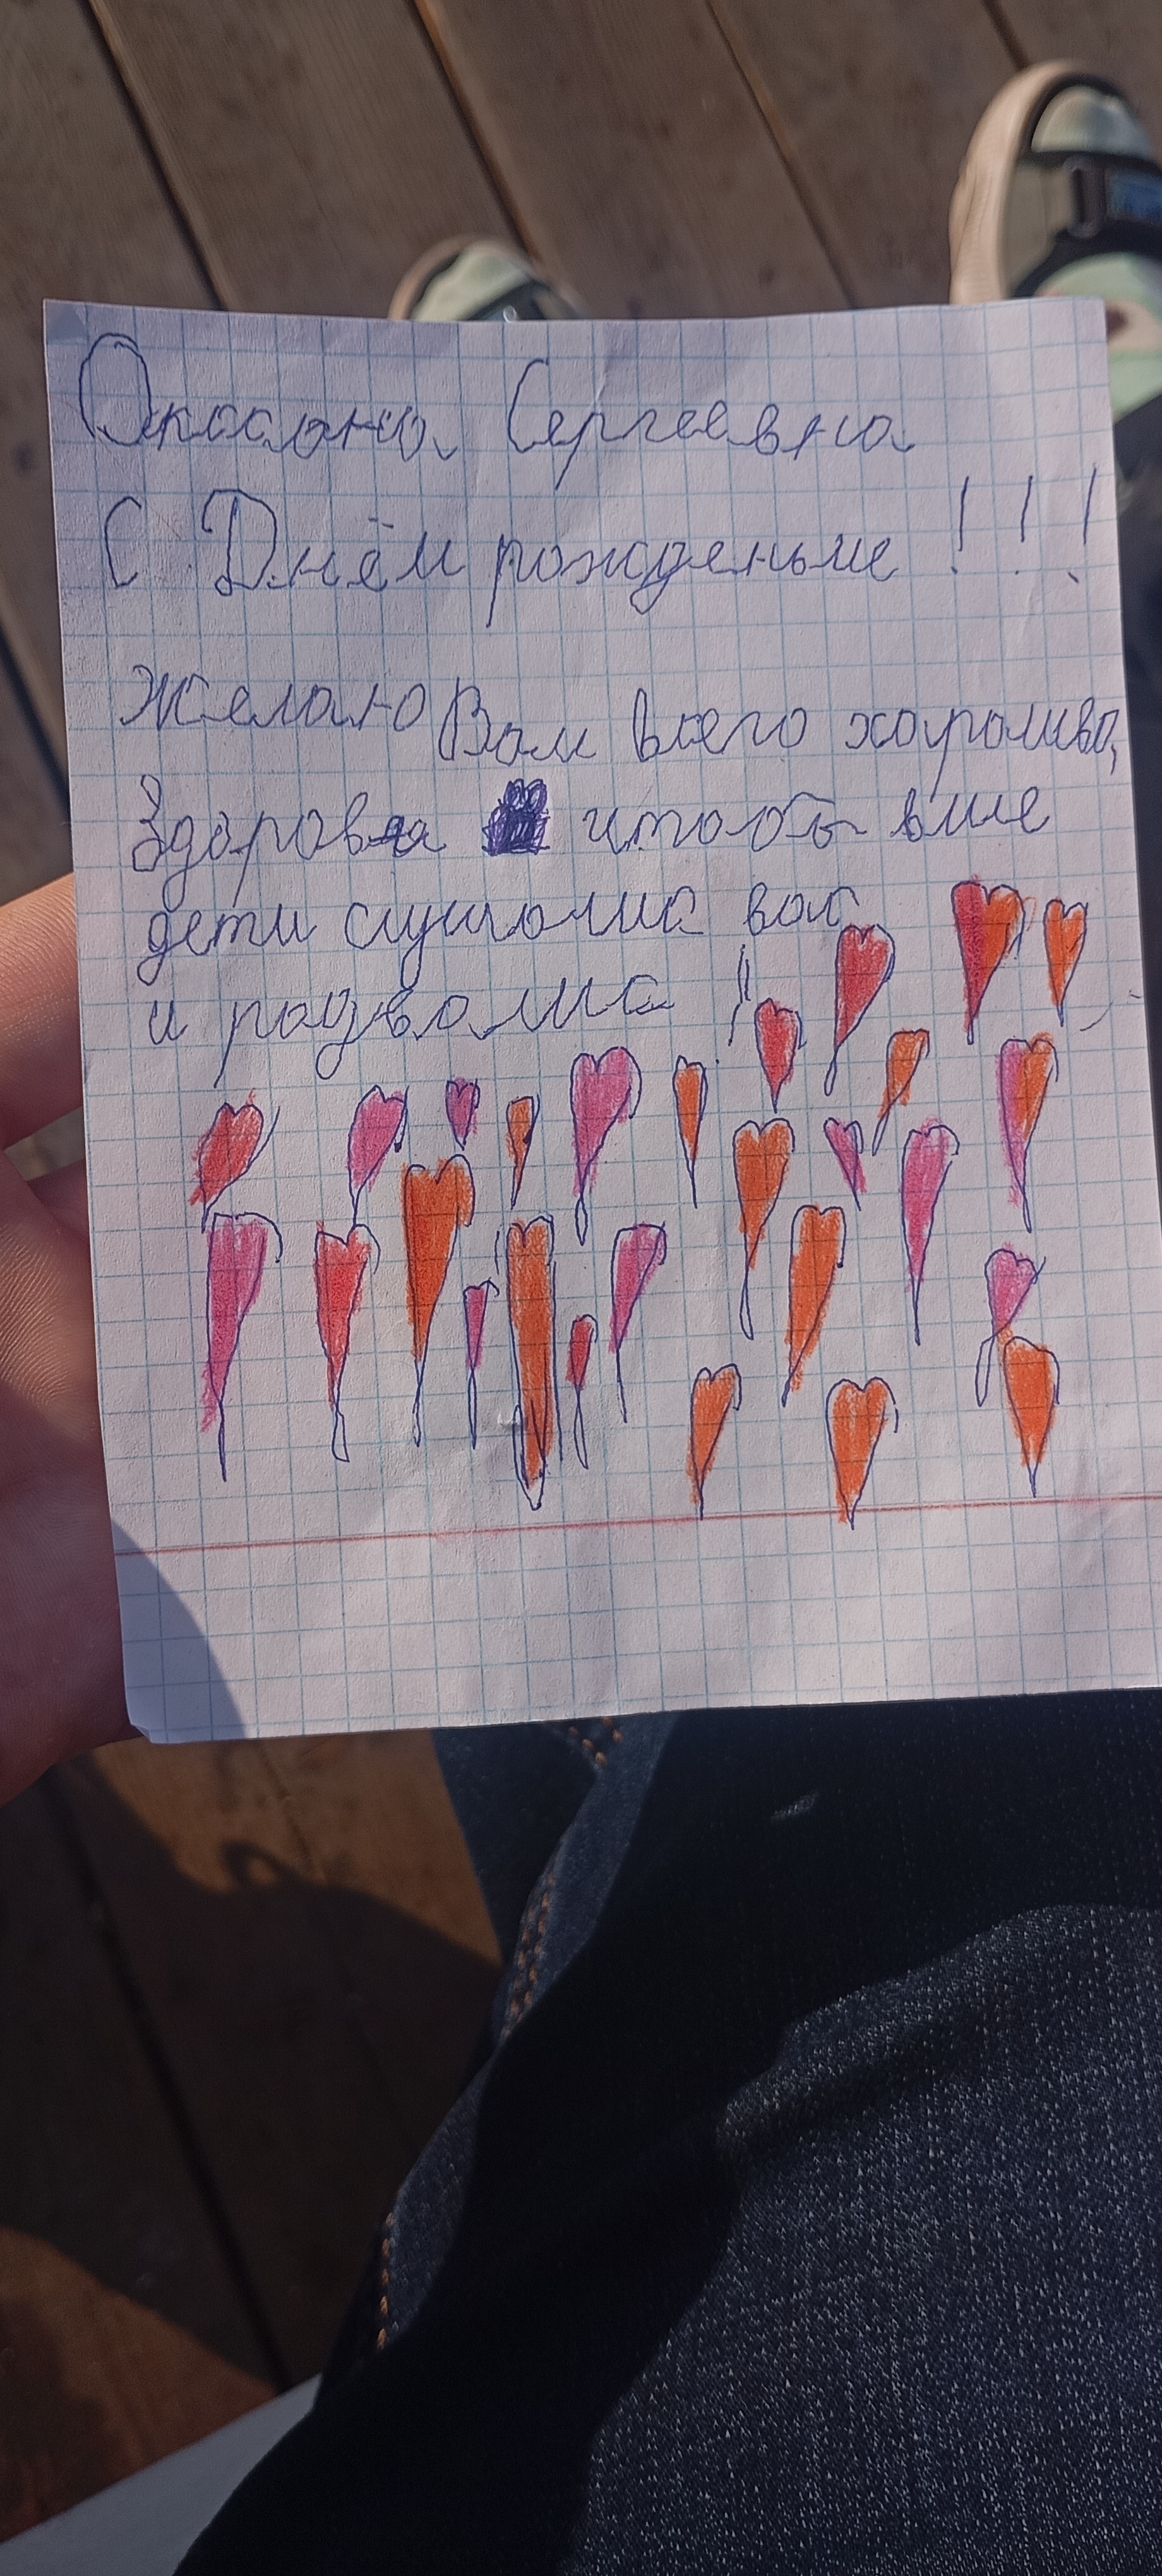 Окосана Сергеевна
С Днём рожденьме!!!
Желаю Вам всего хорошево,
Здоровя чтобы вше
дети слушолис вас
и радволис!!